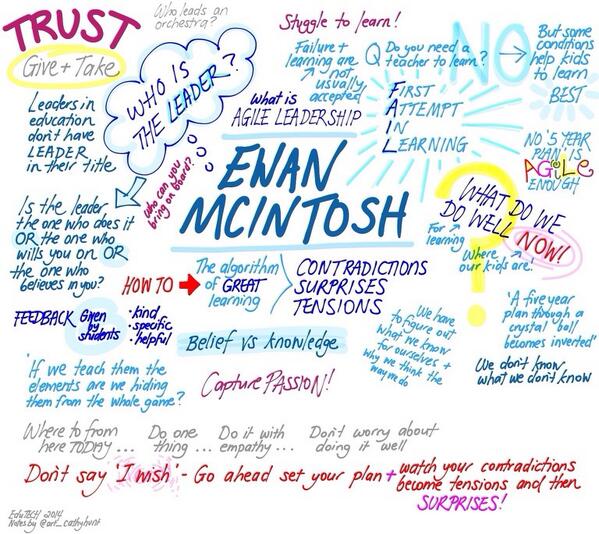 TRUST
Give + Take
Who leads an
orchestra?
WHO IS
THE LEADER?
Stuggle to learn!
Failure +
learning are
not
usually
accepted
Q Do you need a
teacher to learn?
NO
But some
conditions
help kids
to learn
BEST
Leaders in
education
don't have
LEADER
in their title
who can you
bring on board?
What is
AGILE LEADERSHIP
FIRST
ATTEMPT
IN
LEARNING
NO '5 YEAR
PLAN' IS
AGiLE
ENOUGH
EWAN
MCINTOSH
WHAT DO WE
DO WELL
NOW!
?
For
learning
Where
our kids are
Is the leader
the one who does it
OR the one who
wills you on OR
the one who
believes in you?
HOW TO
The algorithm
of GREAT
learning
CONTRADICTIONS
SURPRISES
TENSIONS
FEEDBACK
Given
by
students
• kind
• specific
• helpful
Belief vs knowledge
We have
to figure out
what we know
for ourselves +
why we think the
way we do
'A five year
plan through a
crystal ball
becomes inverted'
We don't know
what we don't know
'If we teach them the
elements are we hiding
them from the whole game?
Capture PASSION!
Where to from
here TODAY...
Do one
thing...
Do it with
empathy...
Don't worry about
doing it well
Don't say 'I wish' - Go ahead set your plan + watch your contradictions
become tensions and then
SURPRISES!
EduTECH 2014
Notes by @art_cathyhunt